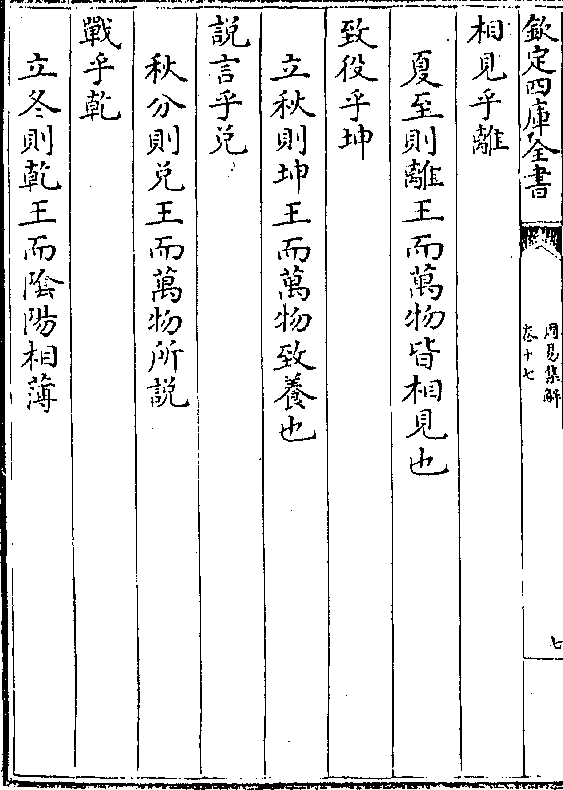 欽定四庫全書
周易集解
卷十七
七
相見乎離
夏至則離王而萬物皆相見也
致役乎坤
立秋則坤王而萬物致養也
説言乎兑
秋分則兑王而萬物所説
戰乎乾
立冬則乾王而陰陽相薄